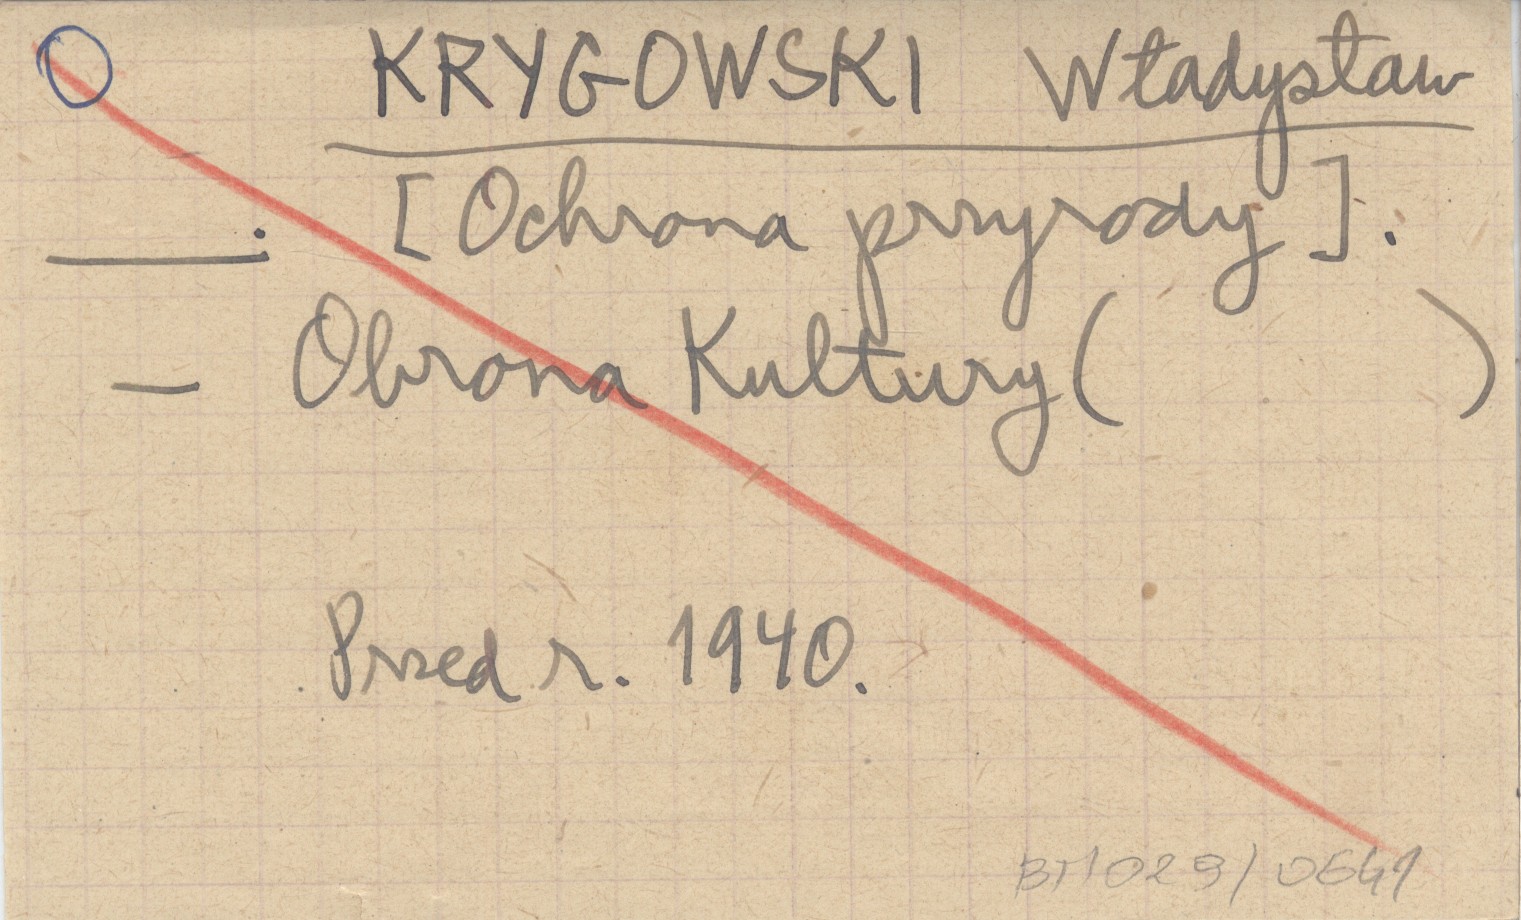 KRYGOWSKI Władysław
____: [Ochrona przyrody].
— Obrona Kultury ( )
Przed r. 1940.
BTI 029/0541